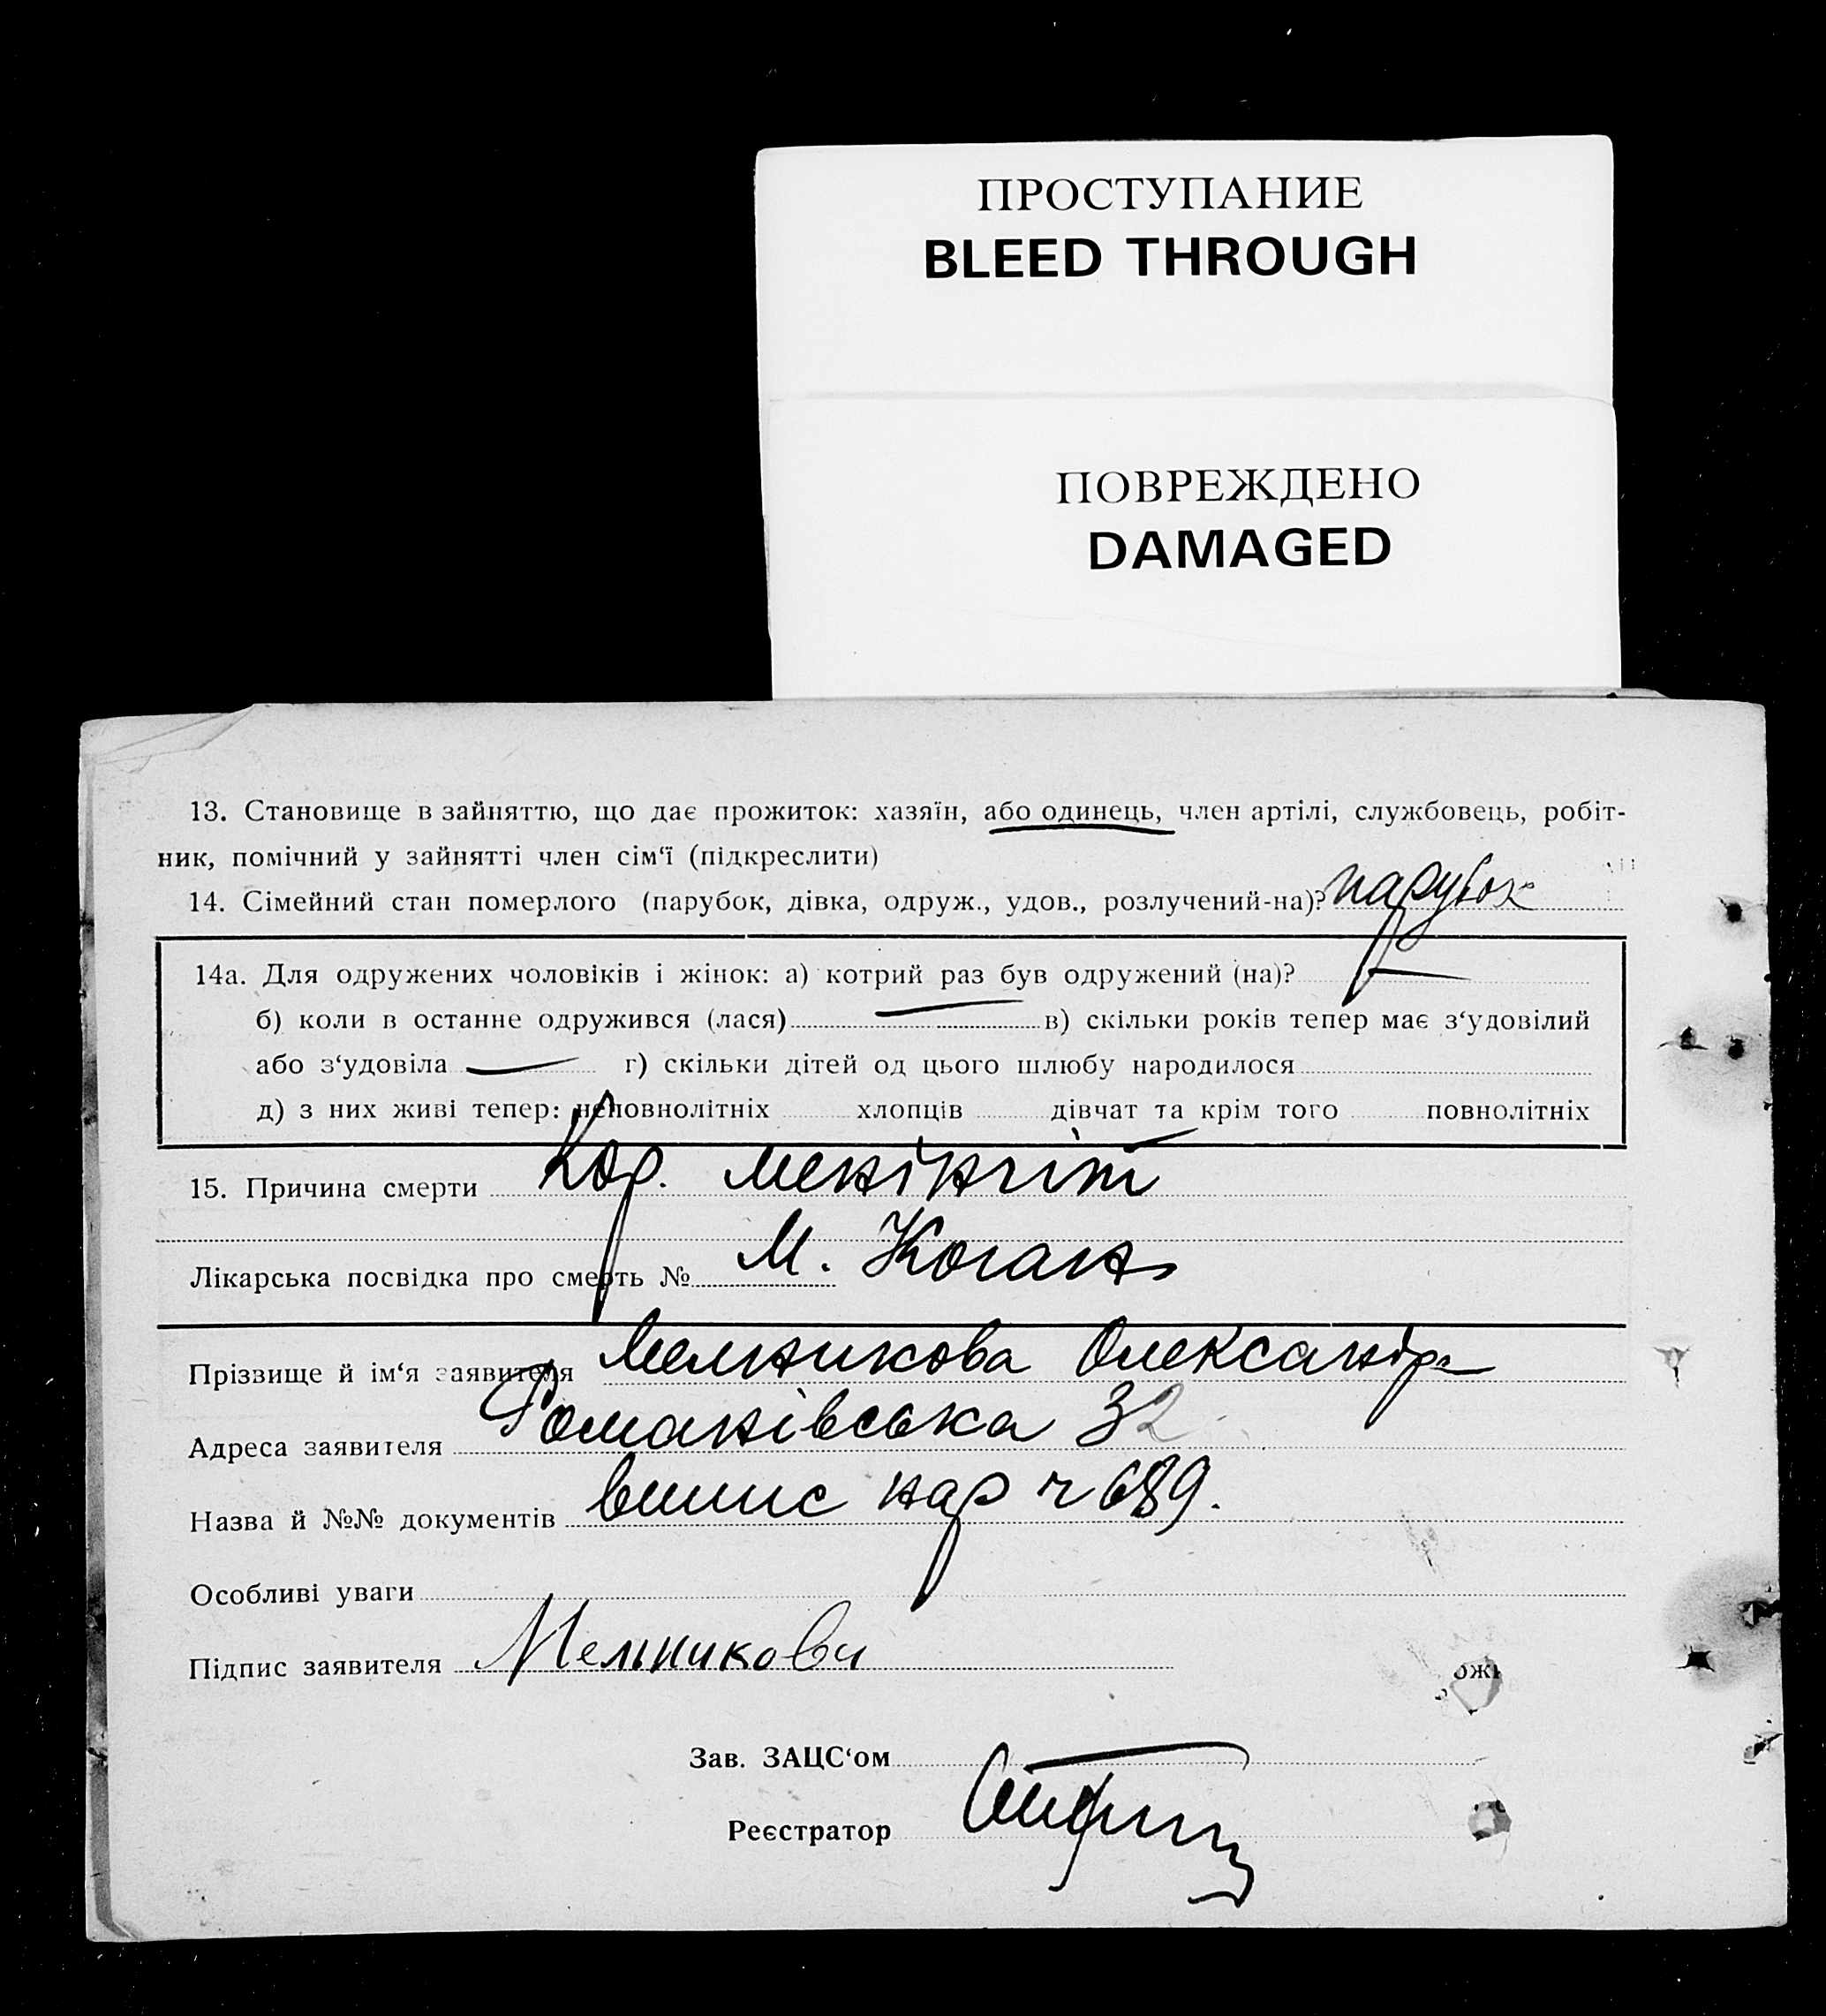 ПРОСТУПАНИЕ
BLEED THROUGH
ПОВРЕЖДЕНО
DAMAGED
13. Становище в зайняттю, що дає прожиток: хазяїн, або одинець, член артілі, службовець, робіт-
ник, помічний у зайнятті член сім'ї (підкреслити)
14. Сімейний стан померлого (парубок, дівка, одруж., удов., розлучений-на)? парубок
14а. Для одружених чоловіків і жінок: а) котрий раз був одружений (на)? —
б) коли в останне одружився (лася) — в) скільки років тепер має з'удовілий
або з'удовіла — г) скільки дітей од цього шлюбу народилося
д) з них живі тепер: неповнолітніх хлопців дівчат та крім того повнолітніх
15. Причина смерти Кор. менінгіт
Лікарська посвідка про смерть № М. Коган
Прізвище й ім'я заявителя Мелникова Олександра
Адреса заявителя Романівська 32
Назва й №№ документів випис нар ч 689.
Особливі уваги
Підпис заявителя Мельникови
Зав. ЗАЦС'ом
Реєстратор